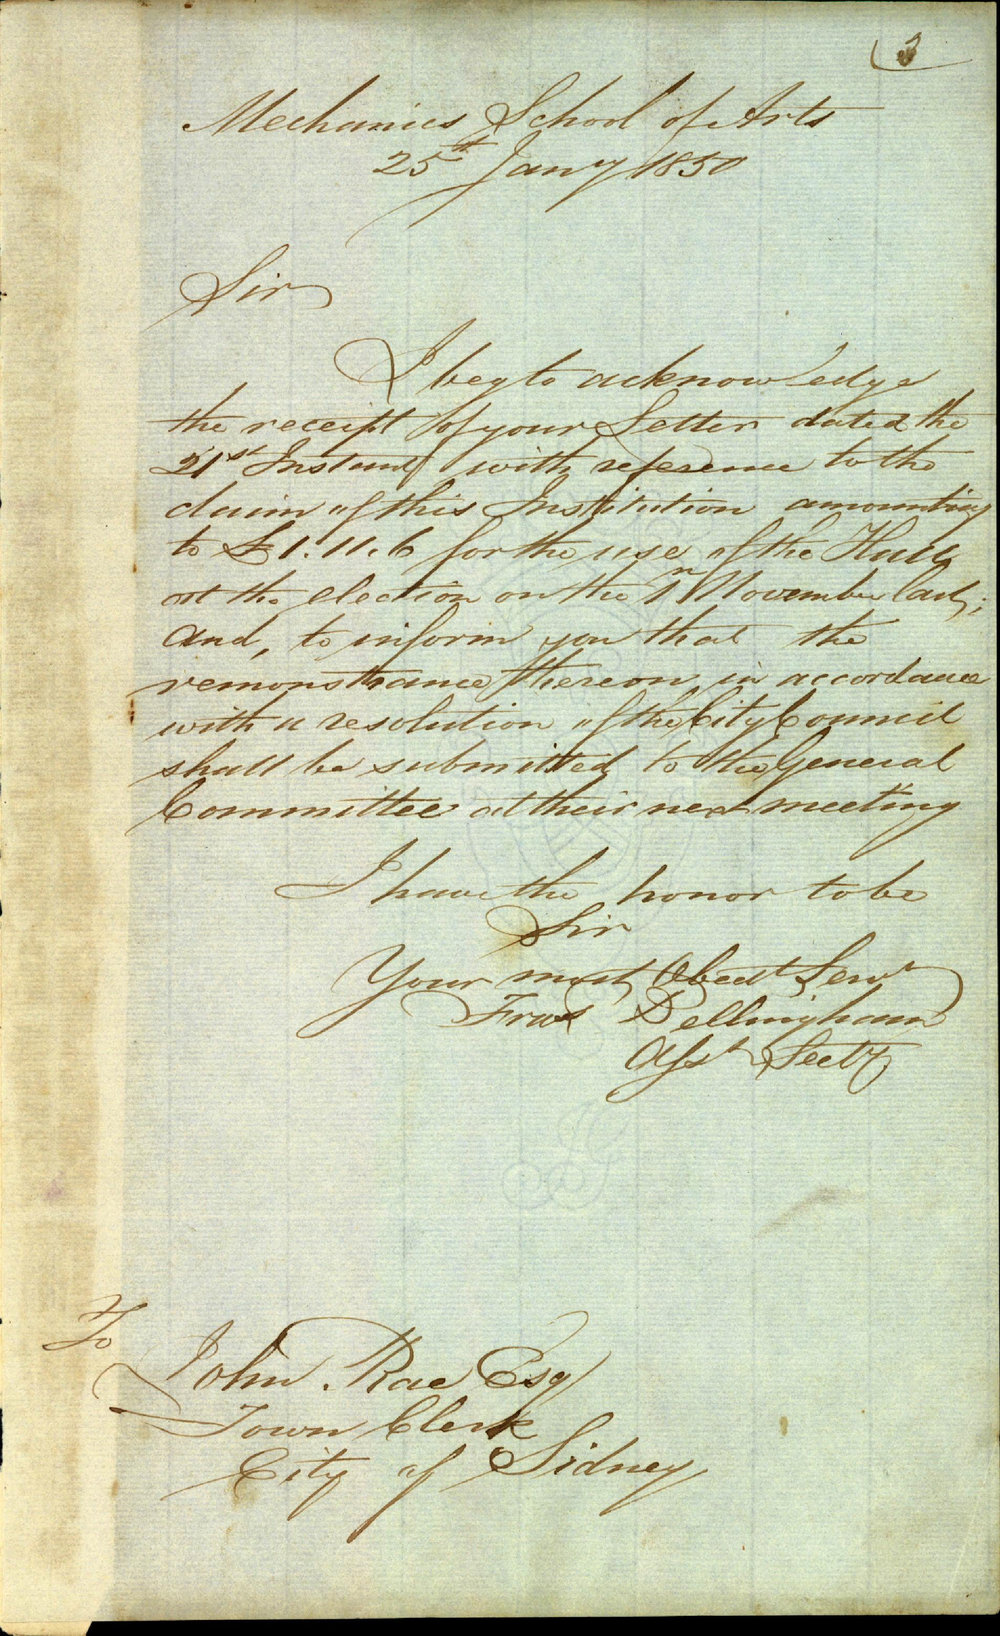 3
Mechanics School of Arts
25th Jany 1850
Sir
I beg to acknowledge
the receipt of your Letter dated the
21st Instant with reference to the
claim of this Institution amounting
to £1.11.6 for the use of the Hall
at the election on the 1st November last;
and, to inform you that the
remonstrance thereon in accordance
with a resolution of the City Council
shall be submitted to the General
Committee at their next meeting
I have the honor to be
Sir
Your most Obedt Servt
Fras Dellingham
Asst Secty
To
John Rae Esq
Town Clerk
City of Sidney